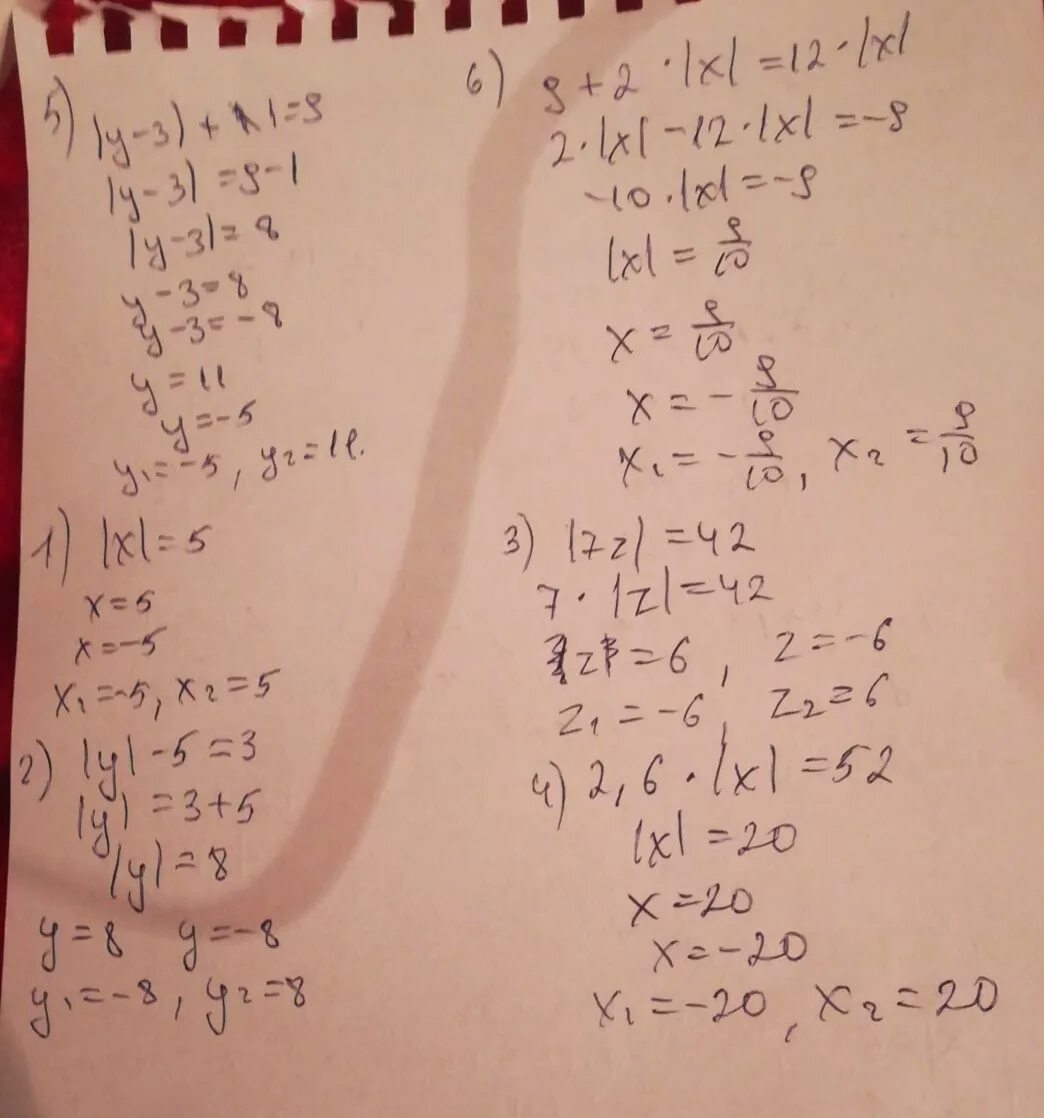 5) |y-3|+1=9
|y-3|=9-1
|y-3|=8
y-3=8
y-3=-8
y=11
y=-5
y₁=-5, y₂=11.
1) |x|=5
x=5
x=-5
x₁=-5, x₂=5
2) |y|-5=3
|y|=3+5
|y|=8
y=8 y=-8
y₁=-8, y₂=8
6) 9+2·|x|=12·|x|
2·|x|-12·|x|=-9
-10·|x|=-9
|x|=9/10
x=9/10
x=-9/10
x₁=-9/10, x₂=9/10
3) |7z|=42
7·|z|=42
z=6, z=-6
z₁=-6, z₂=6
4) 2,6·|x|=52
|x|=20
x=20
x=-20
x₁=-20, x₂=20